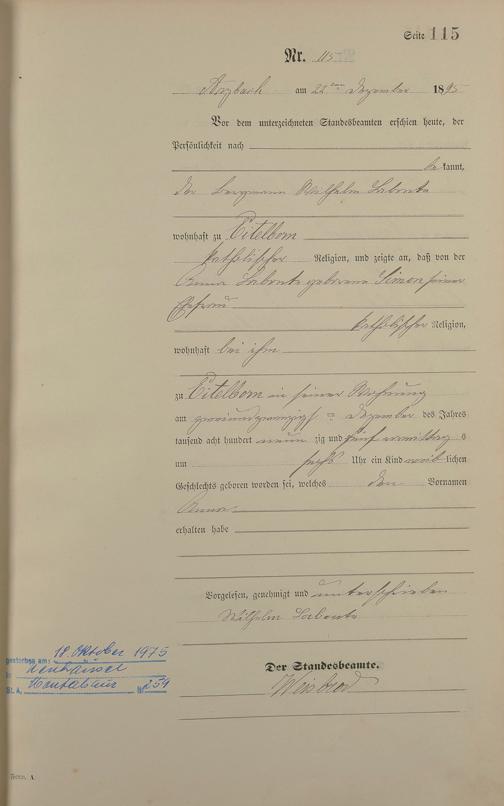 Seite 115
Nr. 115
Arzbach am 22ten Dezember 1895
Vor dem unterzeichneten Standesbeamten erschien heute, der
Persönlichkeit nach
bekannt,
der Bergmann Wilhelm Labonte
wohnhaft zu Eitelborn
katholischer Religion, und zeigte an, daß von der
Anna Labonte geborene Simon seiner
Ehefrau
katholischer Religion,
wohnhaft bei ihm
zu Eitelborn in seiner Wohnung
am zweiundzwanzigsten Dezember des Jahres
tausend acht hundert neunzig und fünf vormittags
um sechs Uhr ein Kind weiblichen
Geschlechts geboren worden sei, welches den Vornamen
Anna
erhalten habe
Vorgelesen, genehmigt und unterschrieben
Wilhelm Labonte
Der Standesbeamte.
Weisbrod
gestorben am: 18. Oktober 1975
in Neuhäusel
St. A. Montabaur Nr 259
Form. A.